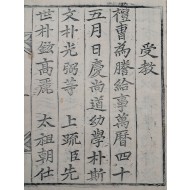 受教
禮曹為謄給事萬曆四十
五月日慶尚道幼學朴斯
文朴光弼等　上疏臣先
世朴緻高麗　太祖朝仕